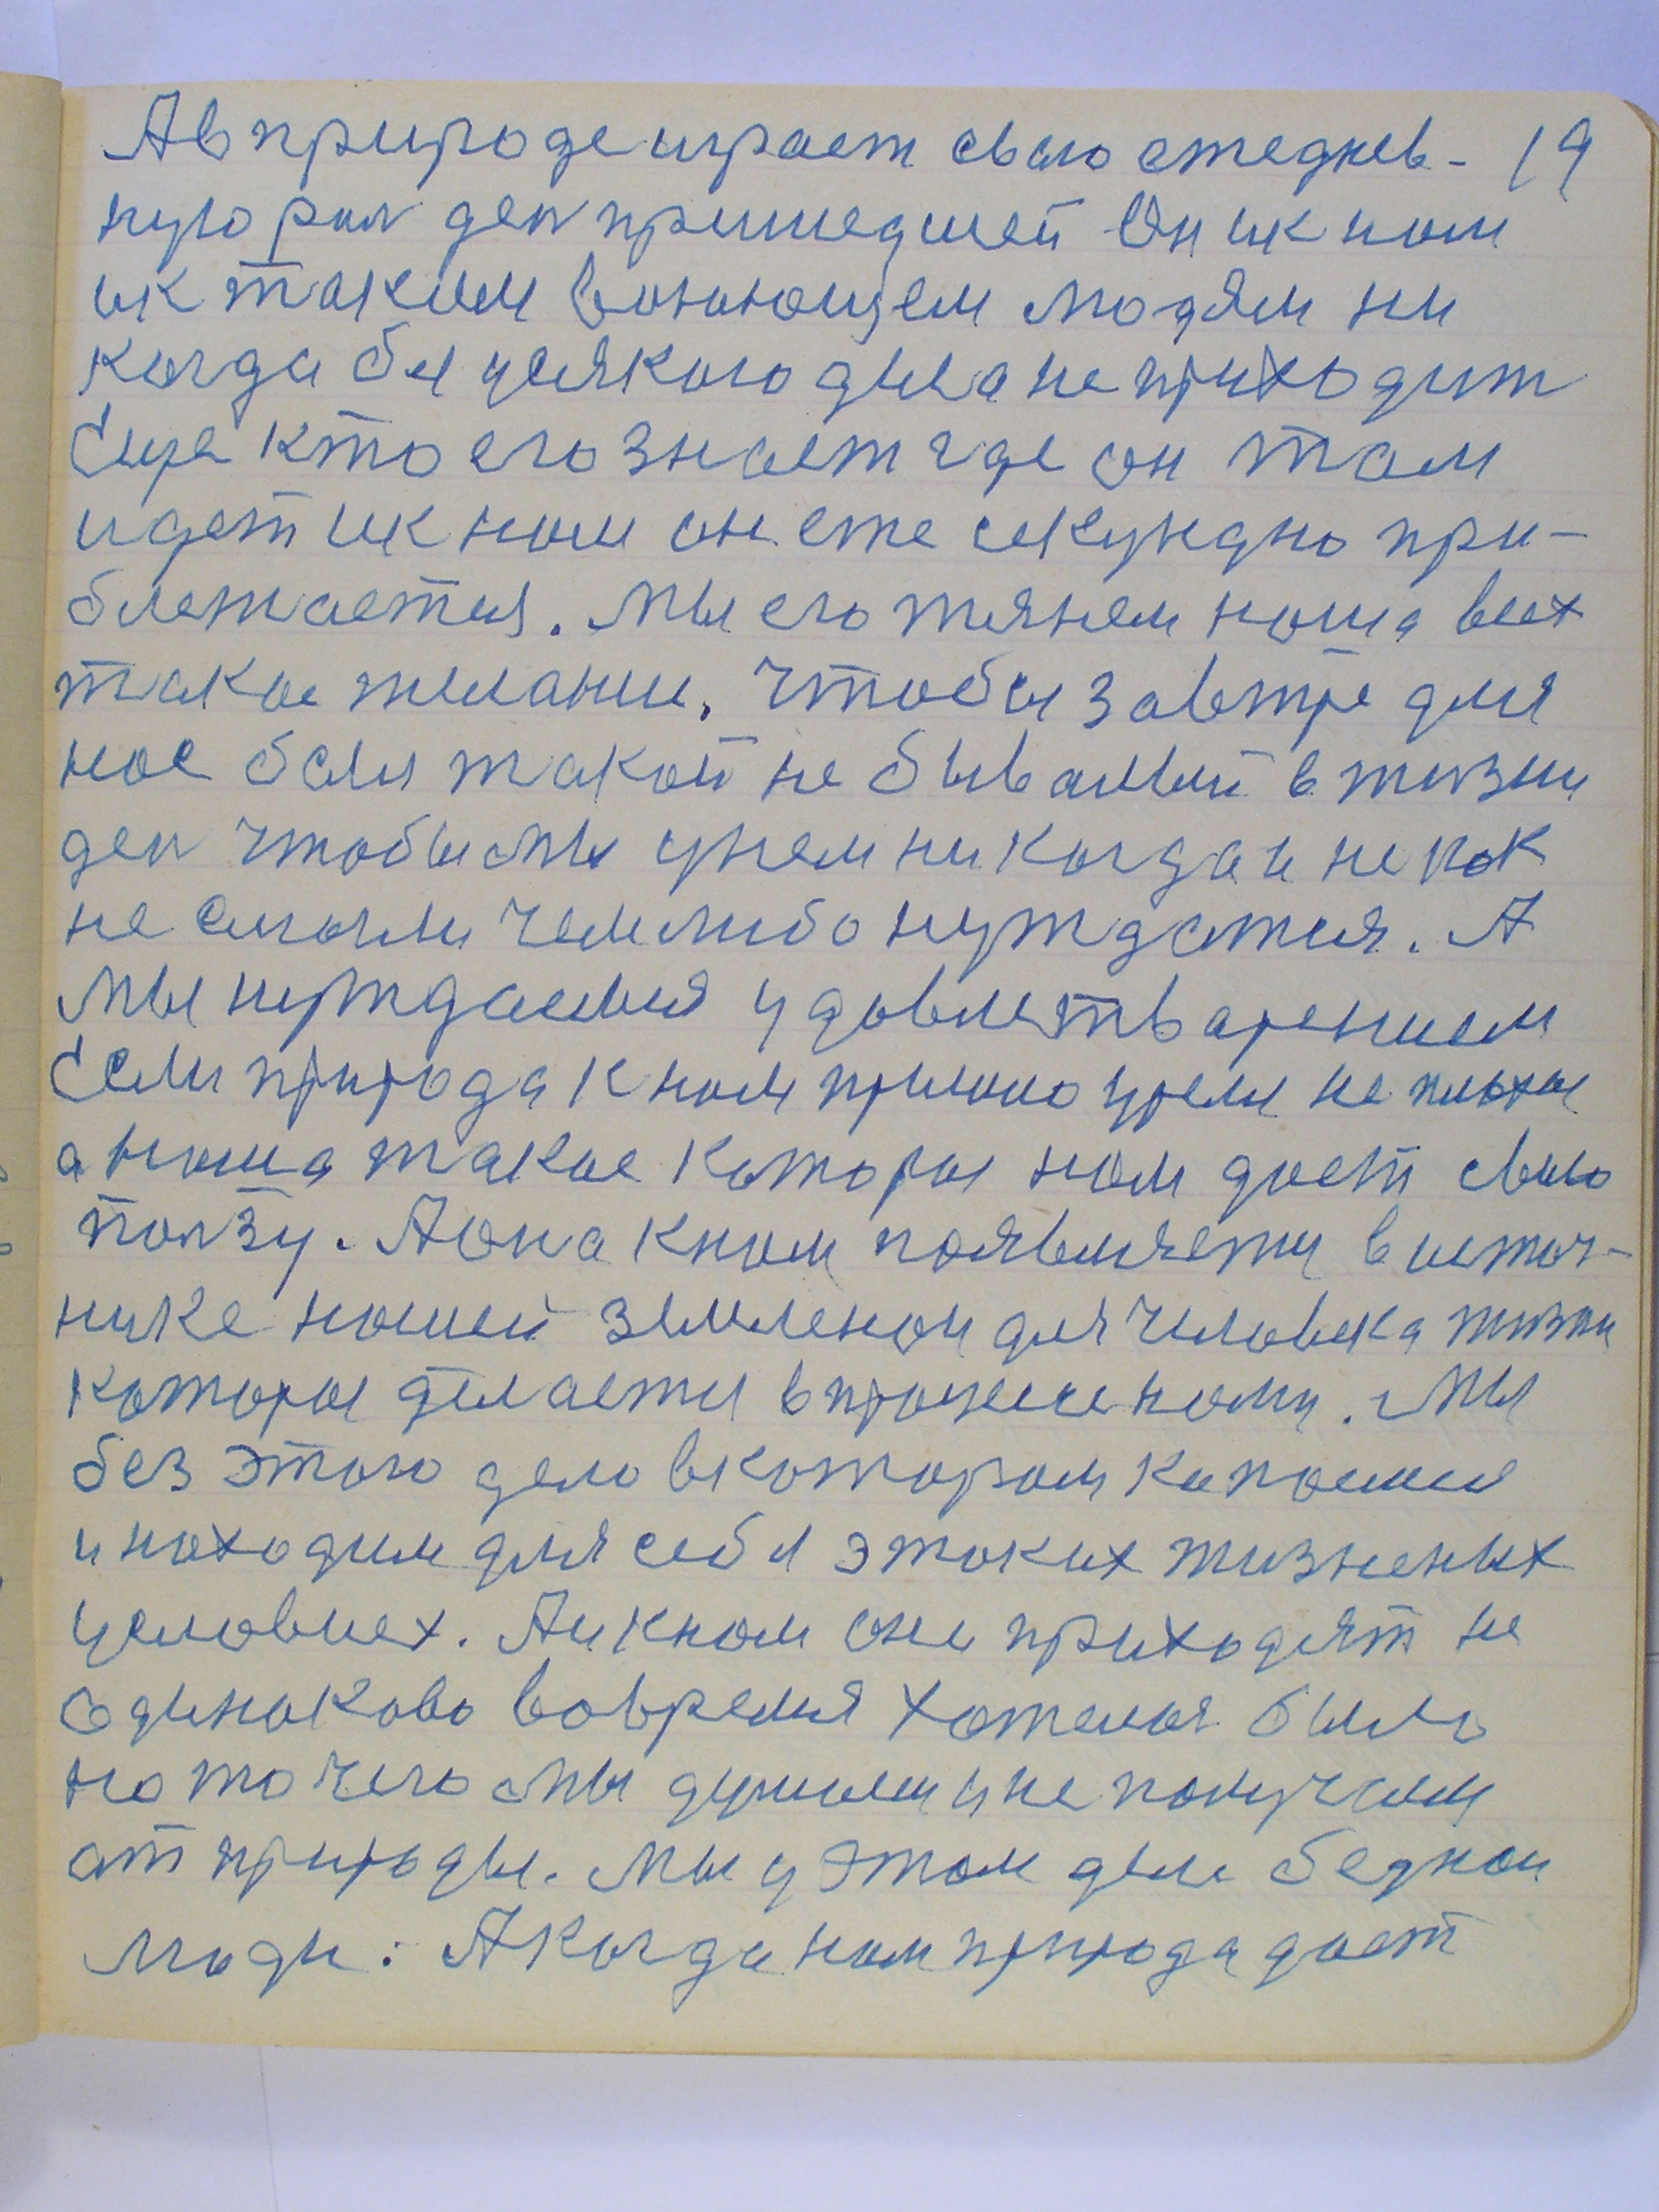 А в природе играет свою ежеднев- 19
ную рол ден пришедшей Он ик нам
ик таким воюющем людям ни
когда бы усякого дила не приходит
Еще кто его знает где он там
идет ик нам он еже секундно при-
блежается. Мы его тянем наша всех
такое желание. Чтобы завтре для
нас был такой не бывалый в жизни
ден чтобы мы у нем никогда и не как
не смогли чем либо нуждатся. А
мы нуждаемся удовлетварением
Если природа к нам пришло уремя не плохое
а наша такое которое нам дает свою
ползу. А она к нам появляется в источ-
нике нашей земленой для человека жизни
которое делается в процессе нашу. Мы
без этого дела в котором капаемся
и находим для себя этаких жизненых
условиех. А и к нам они приходят не
одинаково вовремя хателся было
но то чего мы думаем у не получаем
от природы. Мы у этом деле бедное
люди: А когда нам природа дает